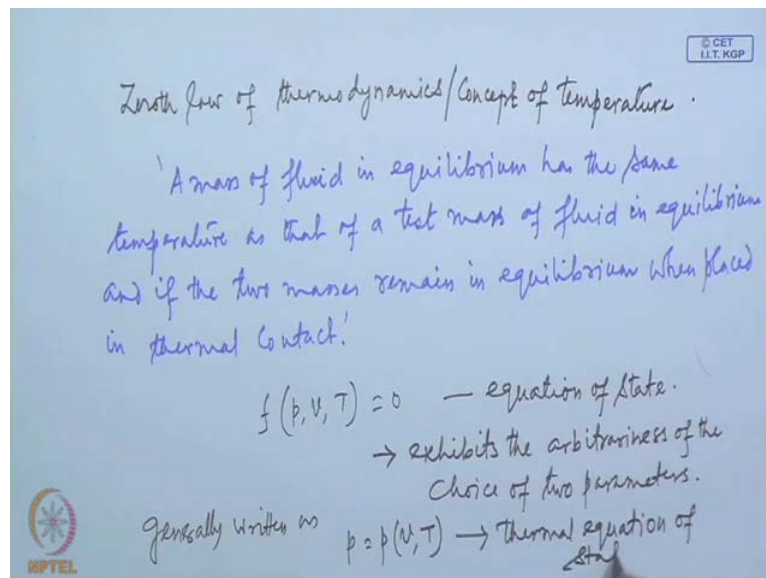 © CET
I.I.T. KGP
Zeroth law of thermodynamics/Concept of temperature.
'A mass of fluid in equilibrium has the same
temperature as that of a test mass of fluid in equilibrium
and if the two masses remain in equilibrium when placed
in thermal contact.'
f(p, v, T) = 0 — equation of state.
→ exhibits the arbitrariness of the
choice of two parameters.
generally written as p = p(v, T) → thermal equation of
sta
NPTEL